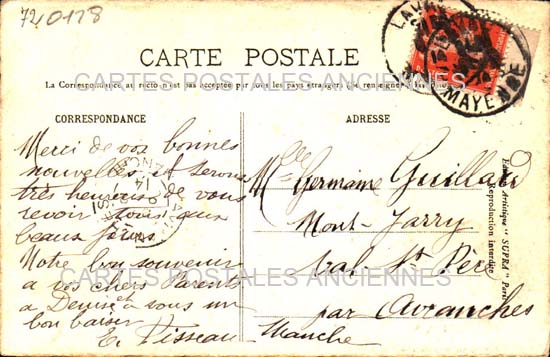 720178
LAVAL
MAYENNE
CARTE POSTALE
La Correspondance au recto n'est pas acceptée par tous les pays étrangers (Se renseigner
CARTES POSTALES ANCIENNES
CORRESPONDANCE
ADRESSE
Merci de vos bonnes
nouvelles et serons
très heureux de vous
revoir tous aux
beaux jours
Notre bon souvenir
a vos chers Parents
a Denise et a vous un
bon baiser
E. Tisseau
Mlle Germaine Guillard
Mont-Jarry
Val St Père
par Avranches
Manche
CARTES POSTALES ANCIENNES
Edition Artistique "SUPRA" Paris
Reproduction interdite